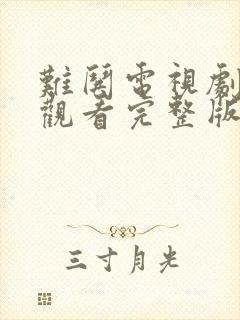 難闋電視劇
觀看完整版
三寸月光